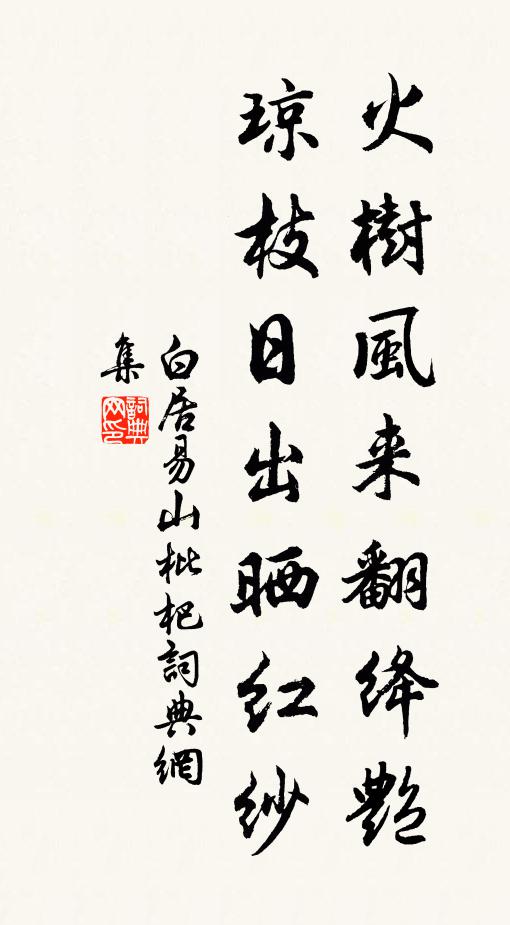 火樹風来翻絳艷
琼枝日出晒红紗
白居易山枇杷詞典網
集
詞典网印